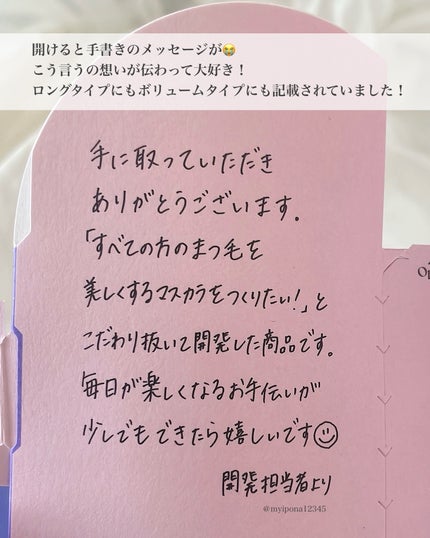 開けると手書きのメッセージが😭
こう言うの想いが伝わって大好き！
ロングタイプにもボリュームタイプにも記載されていました！
手に取っていただき
ありがとうございます。
「すべての方のまつ毛を
美しくするマスカラをつくりたい!」と
こだわり抜いて開発した商品です。
毎日が楽しくなるお手伝いが
少しでもできたら嬉しいです☺
開発担当者より
@myipona12345